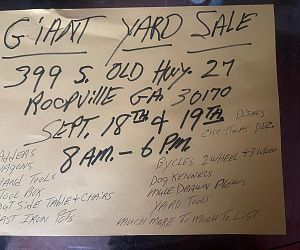 GIANT YARD SALE
399 S. OLD HWY. 27
ROOPVILLE GA. 30170
SEPT. 18TH & 19TH
8 AM. - 6 PM.
DISHES
CHRISTMAS DEC.
ADDERS
WAGONS
HARD TOOLS
TOOL BOX
OUT SIDE TABLE & CHAIRS
AST IRON POTS
BYCLES 2 WHEEL + 3 WHEEL
DOG KENNELS
MULE DRAWN PLOWS
YARD TOOLS
MUCH MORE TO MUCH TO LIST